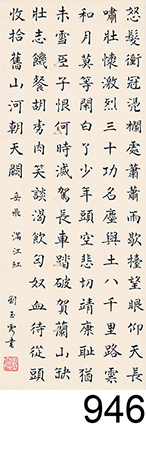 怒髮衝冠憑欄處蕭蕭雨歇擡望眼仰天長
嘯壯懷激烈三十功名塵與土八千里路雲
和月莫等閑白了少年頭空悲切靖康耻猶
未雪臣子恨何時滅駕長車踏破賀蘭山缺
壯志饑餐胡虜肉笑談渴飲匈奴血待從頭
收拾舊山河朝天闕 岳飛 滿江紅
劉玉書
946